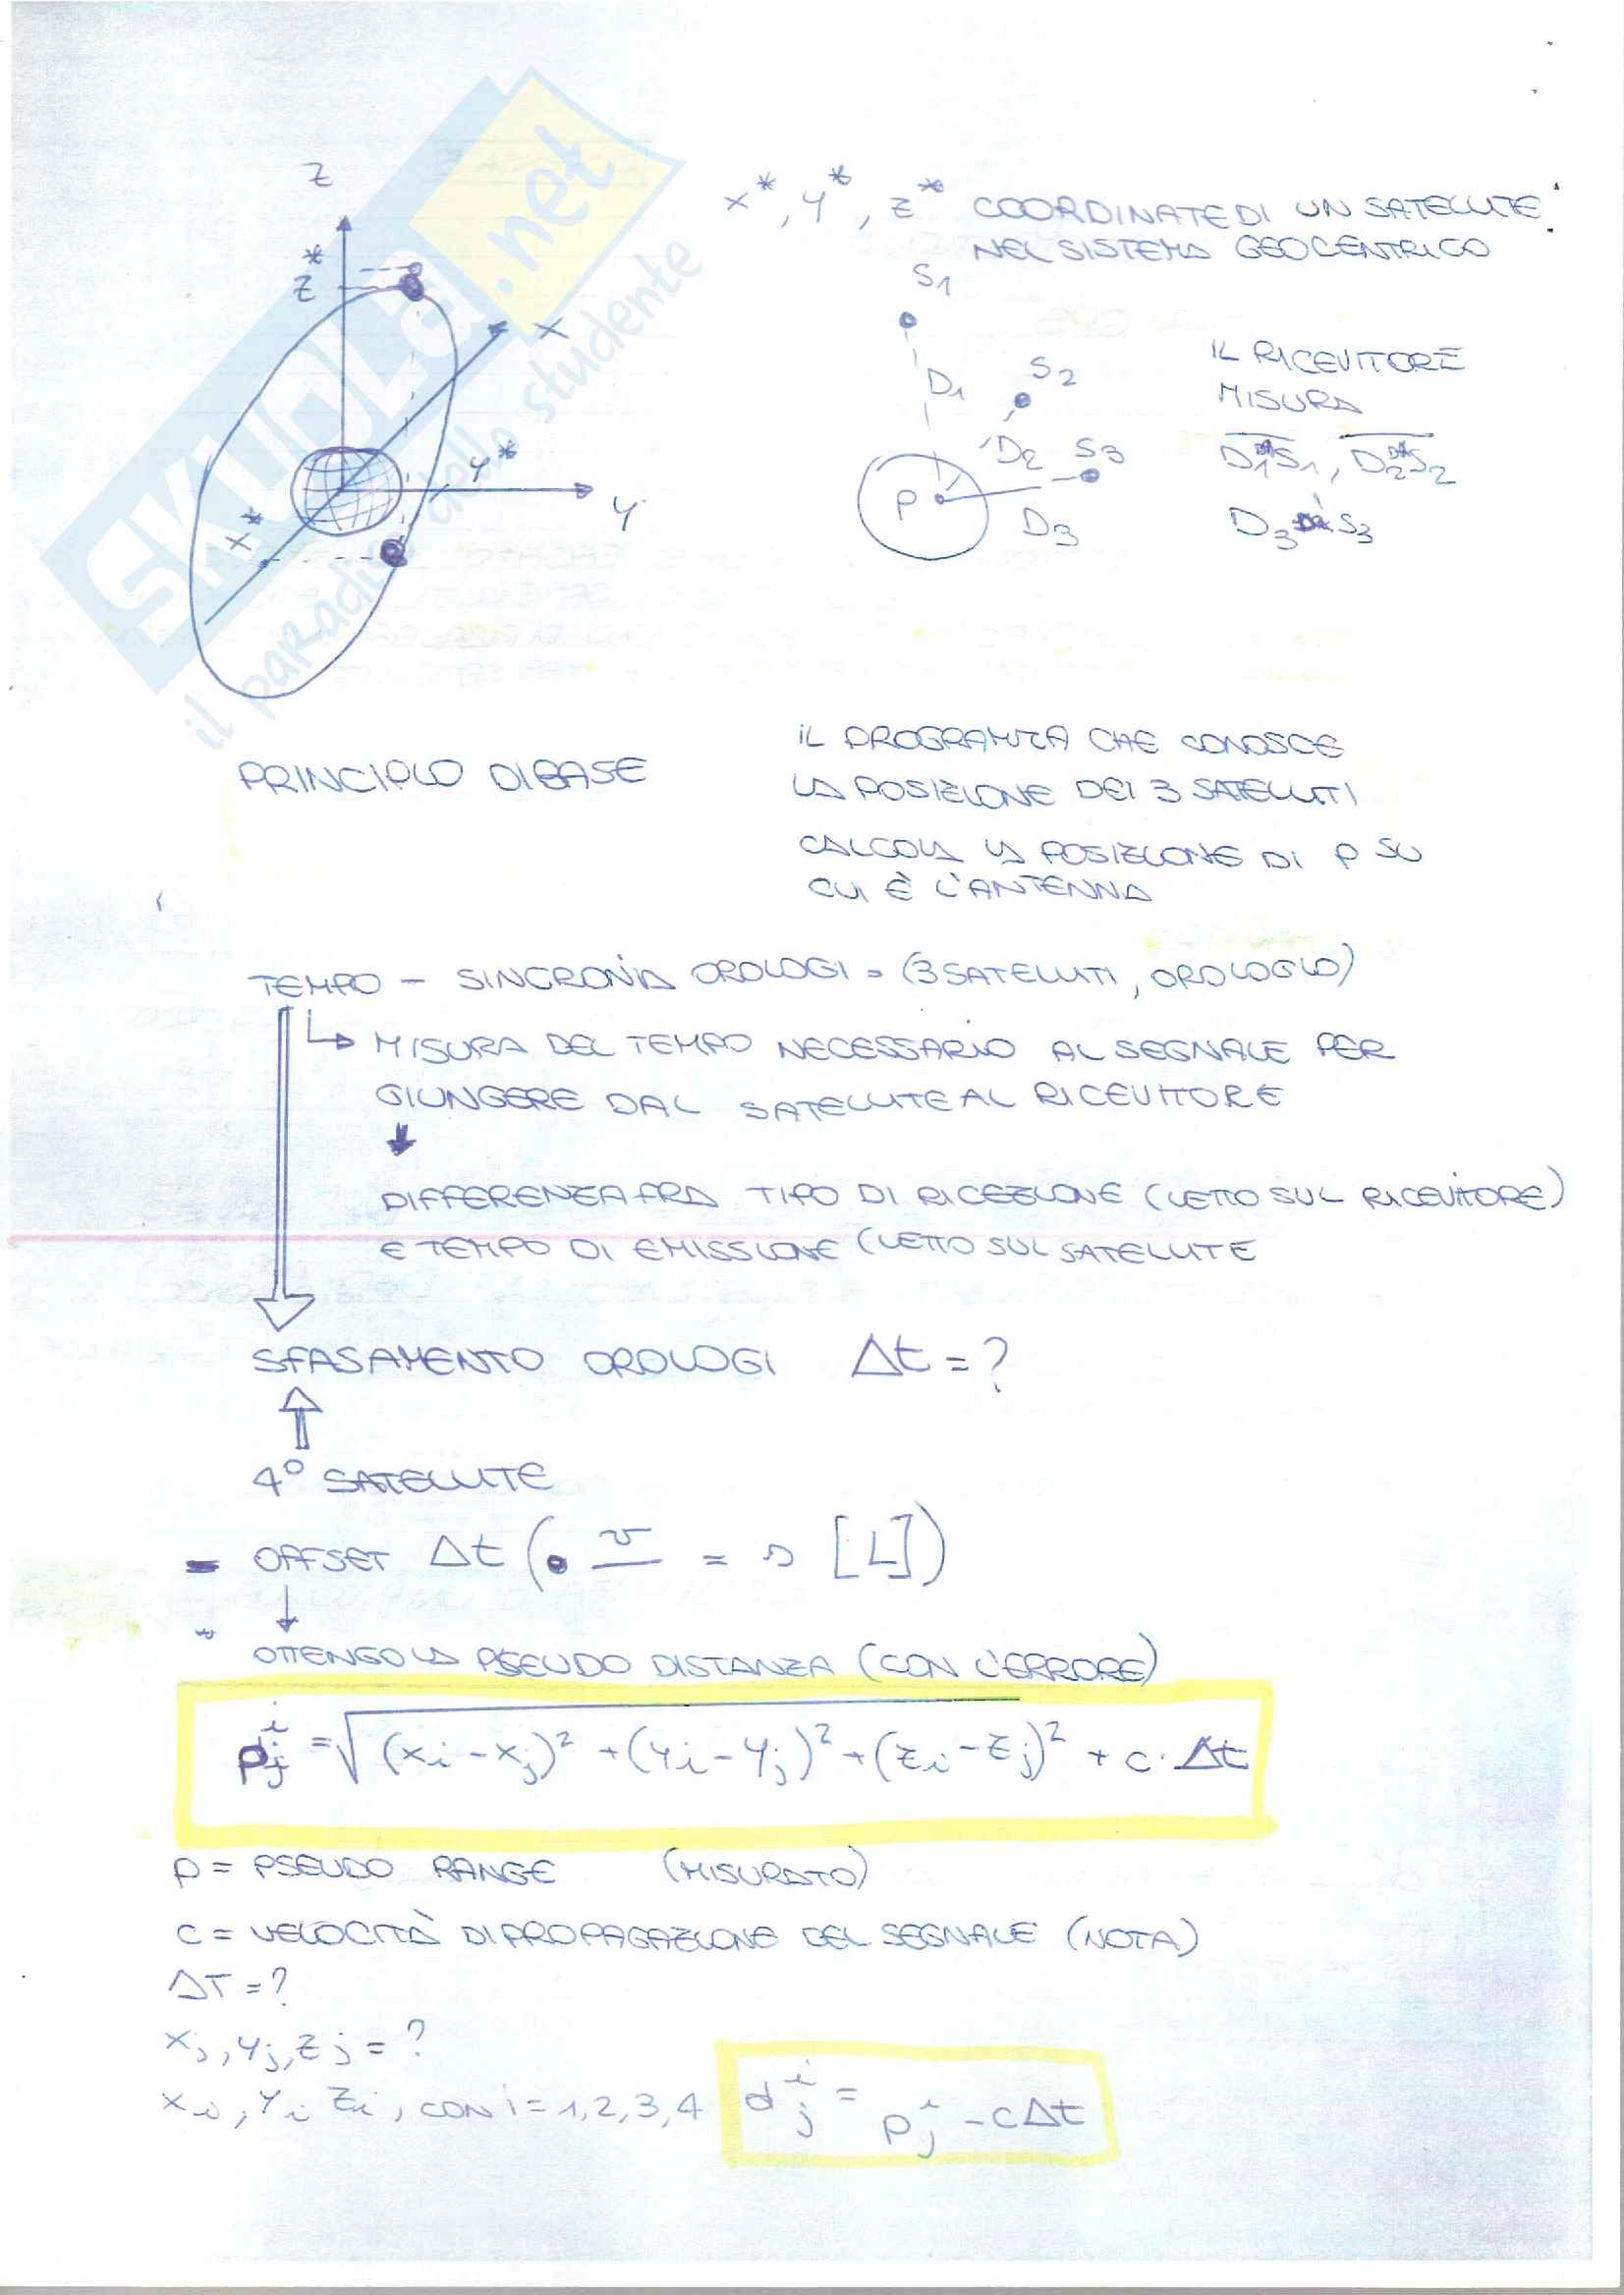 SKUOLA.net
il paradiso dello studente
Z
Z*
X
Y*
Y
X*
x*, y*, z* COORDINATE DI UN SATELLITE
NEL SISTEMA GEOCENTRICO
S1
D1
S2
D2
S3
P
D3
IL RICEVITORE
MISURA
D1 S1, D2 S2
D3 S3
PRINCIPIO DI BASE
IL PROGRAMMA CHE CONOSCE
LA POSIZIONE DEI 3 SATELLITI
CALCOLA LA POSIZIONE DI P SU
CUI È L'ANTENNA
TEMPO - SINCRONIA OROLOGI = (3 SATELLITI, OROLOGIO)
↳ MISURA DEL TEMPO NECESSARIO AL SEGNALE PER
GIUNGERE DAL SATELLITE AL RICEVITORE
↓
DIFFERENZA FRA TIPO DI RICEZIONE (LETTO SUL RICEVITORE)
E TEMPO DI EMISSIONE (LETTO SUL SATELLITE
SFASAMENTO OROLOGI Δt = ?
4° SATELLITE
= OFFSET Δt (• v = s [L])
↓
OTTENGO LA PSEUDO DISTANZA (CON L'ERRORE)
p_j^i = √(x_i - x_j)² + (y_i - y_j)² + (z_i - z_j)² + c · Δt
P = PSEUDO RANGE (MISURATO)
C = VELOCITÀ DI PROPAGAZIONE DEL SEGNALE (NOTA)
ΔT = ?
x_j, y_j, z_j = ?
x_i, y_i z_i, CON i = 1,2,3,4
d_j^i = p_j^i - cΔt